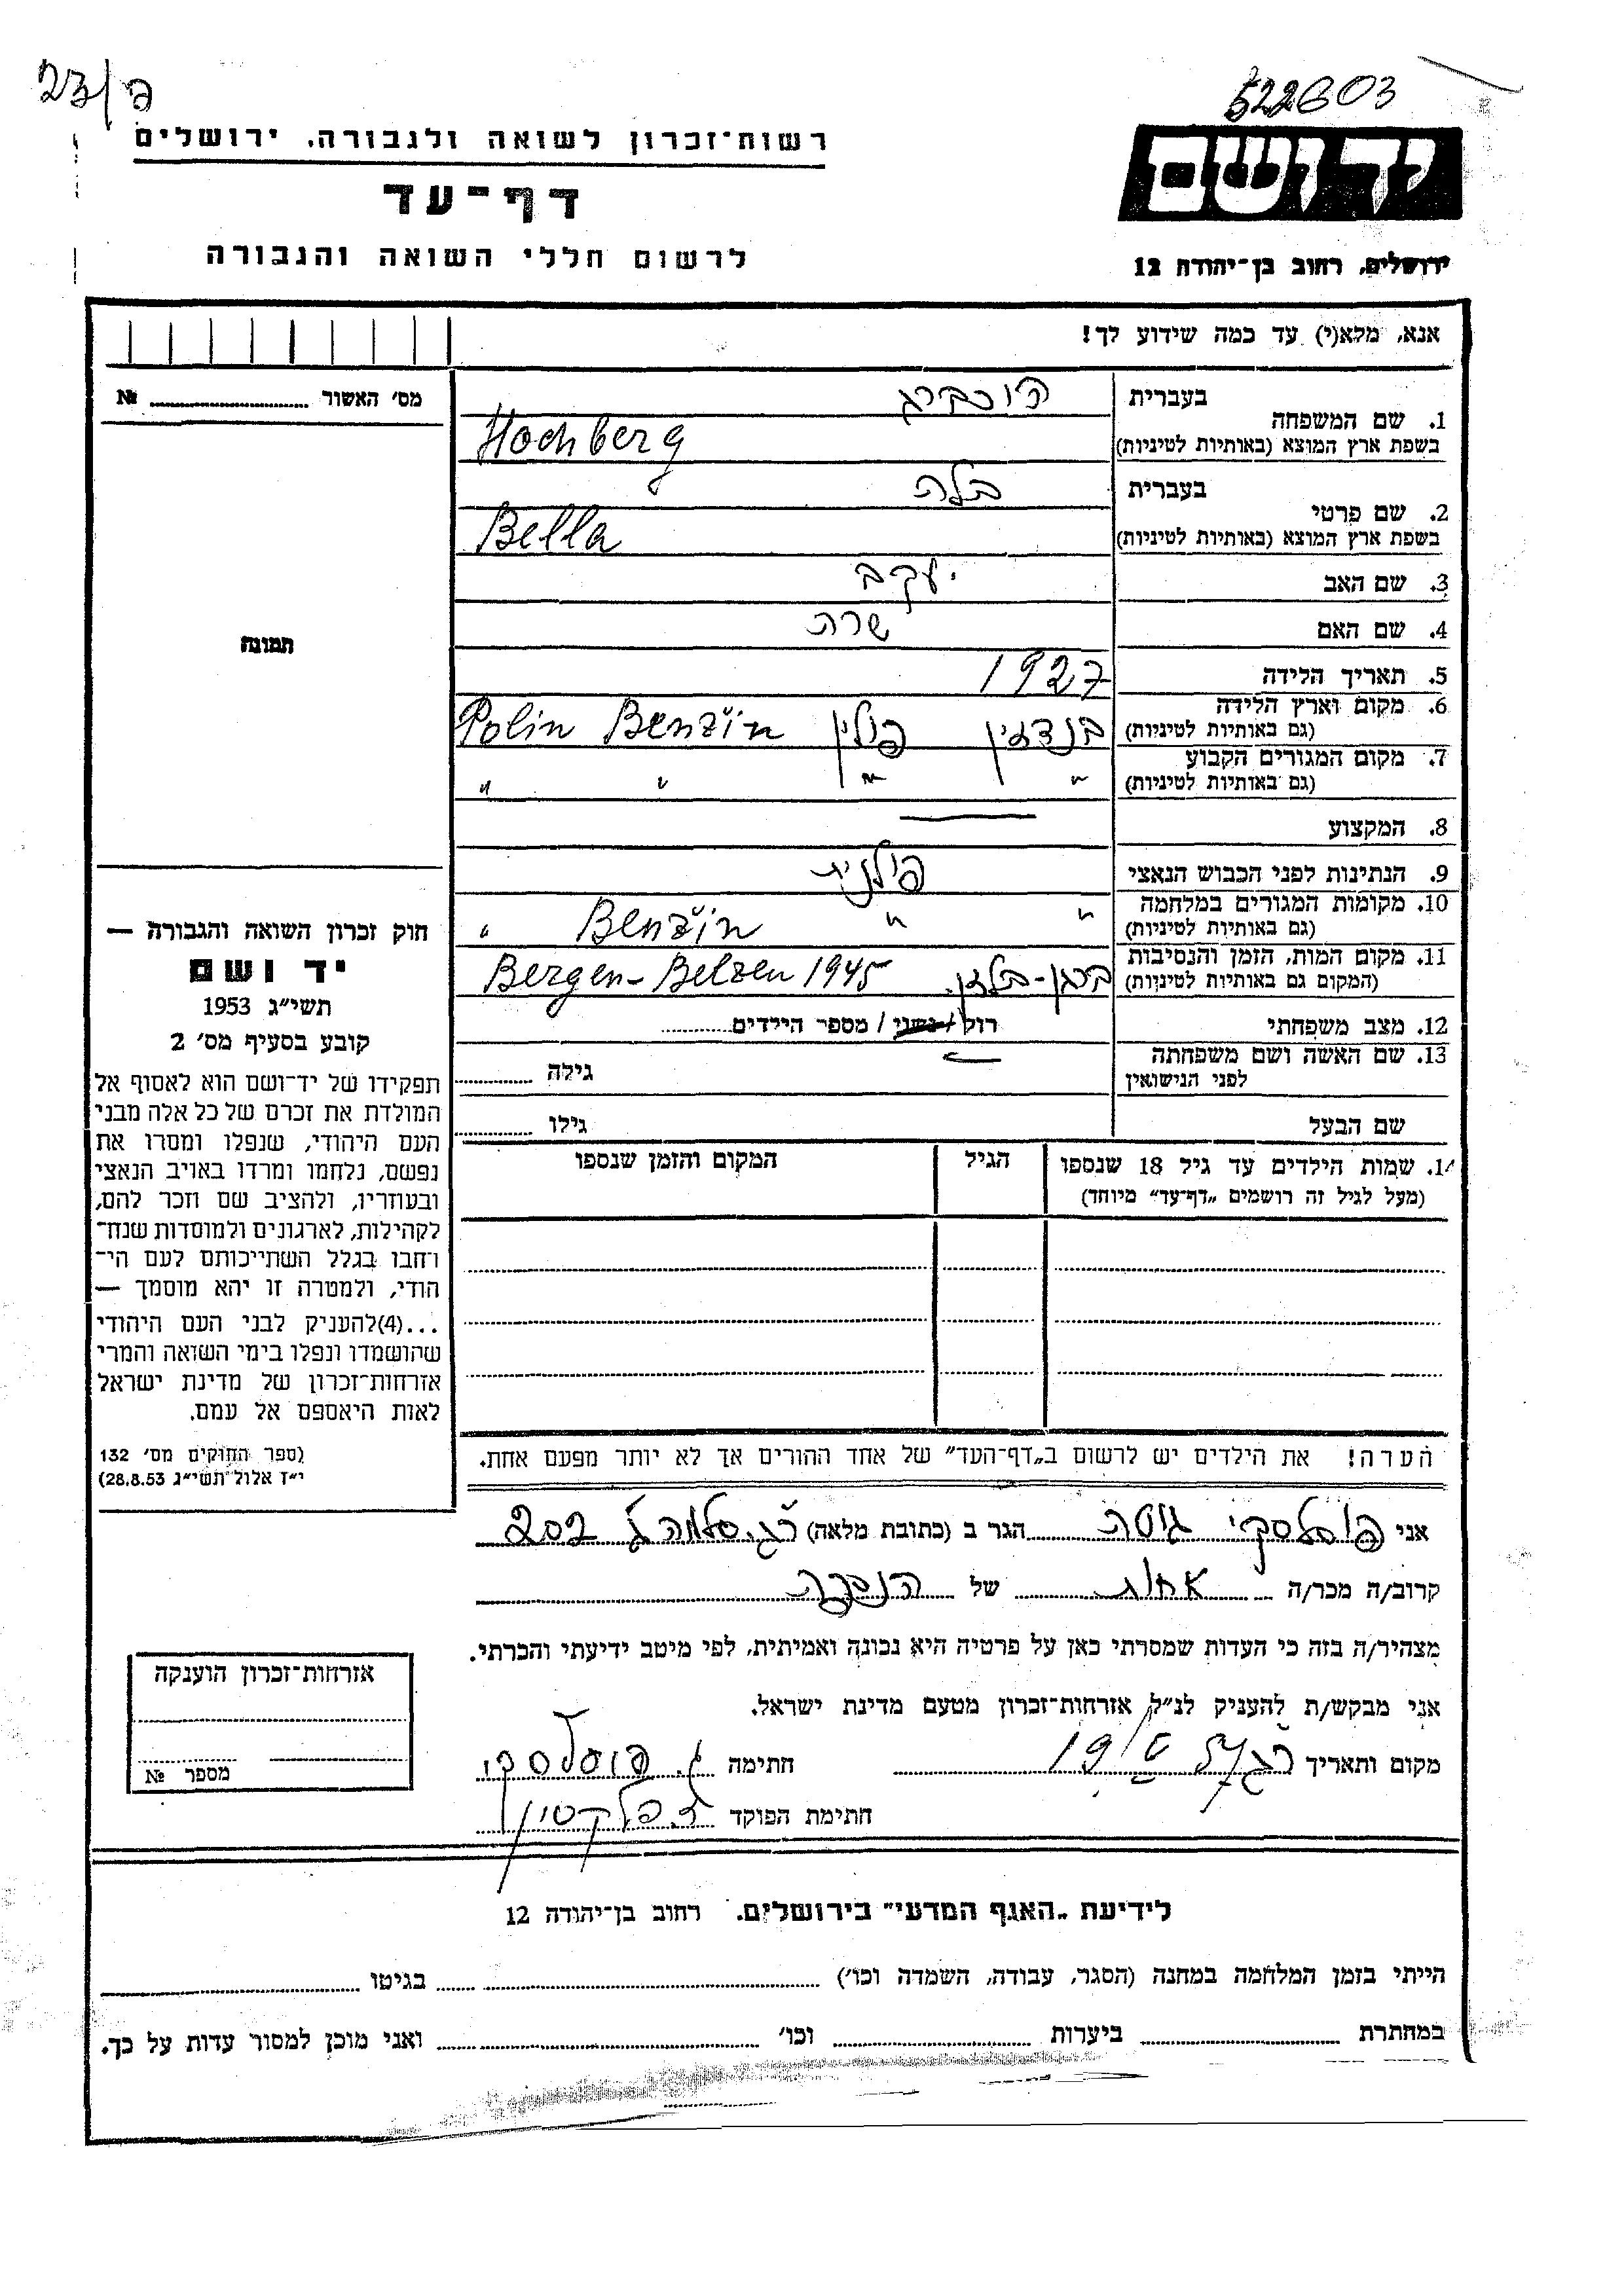 23/פ
522603
רשות־זכרון לשואה ולגבורה, ירושלים
דף־עד
לרשום חללי השואה והגבורה
יד ושם
ירושלים, רחוב בן־יהודה 12
אנא, מלא(י) עד כמה שידוע לך!
מס׳ האשור № ........
תמונה
1. שם המשפחה בעברית הוכברג
בשפת ארץ המוצא (באותיות לטיניות) Hochberg
2. שם פרטי בעברית בלה
בשפת ארץ המוצא (באותיות לטיניות) Bella
3. שם האב יעקב
4. שם האם שרה
5. תאריך הלידה 1927
6. מקום וארץ הלידה (גם באותיות לטיניות) בנדזין פולין Polin Benzin
7. מקום המגורים הקבוע (גם באותיות לטיניות) " " " "
8. המקצוע —
9. הנתינות לפני הכבוש הנאצי פולנית
10. מקומות המגורים במלחמה (גם באותיות לטיניות) " " Benzin "
11. מקום המות, הזמן והנסיבות (המקום גם באותיות לטיניות) ברגן-בלזן. Bergen-Belzen 1945
12. מצב משפחתי רווק / נשוי / מספר הילדים........
13. שם האשה ושם משפחתה לפני הנישואין — גילה ........
שם הבעל גילו ........
14. שמות הילדים עד גיל 18 שנספו
(מעל לגיל זה רושמים „דף־עד” מיוחד)
הגיל
המקום והזמן שנספו
חוק זכרון השואה והגבורה —
יד ושם
תשי״ג 1953
קובע בסעיף מס׳ 2
תפקידו של יד־ושם הוא לאסוף אל
המולדת את זכרם של כל אלה מבני
העם היהודי, שנפלו ומסרו את
נפשם, נלחמו ומרדו באויב הנאצי
ובעוזריו, ולהציב שם וזכר להם,
לקהילות, לארגונים ולמוסדות שנח־
רבו בגלל השתייכותם לעם הי־
הודי, ולמטרה זו יהא מוסמך —
...(4)להעניק לבני העם היהודי
שהושמדו ונפלו בימי השואה והמרי
אזרחות־זכרון של מדינת ישראל
לאות היאספם אל עמם.
(ספר החוקים מס׳ 132
י״ז אלול תשי״ג 28.8.53)
הערה! את הילדים יש לרשום ב„דף־העד” של אחד ההורים אך לא יותר מפעם אחת.
אני פוסלסקי גוטה הגר ב (כתובת מלאה) 202
קרוב/ה מכר/ה אחות של הנספה
מצהיר/ה בזה כי העדות שמסרתי כאן על פרטיה היא נכונה ואמיתית, לפי מיטב ידיעתי והכרתי.
אני מבקש/ת להעניק לנ״ל אזרחות־זכרון מטעם מדינת ישראל.
מקום ותאריך חתימה ג. פוסלסקי
חתימת הפוקד
אזרחות־זכרון הוענקה
מספר №
לידיעת „האגף המדעי” בירושלים. רחוב בן־יהודה 12
הייתי בזמן המלחמה במחנה (הסגר, עבודה, השמדה וכו׳) ........ בגיטו ........
במחתרת ........ ביערות ........ וכו׳ ........ ואני מוכן למסור עדות על כך.